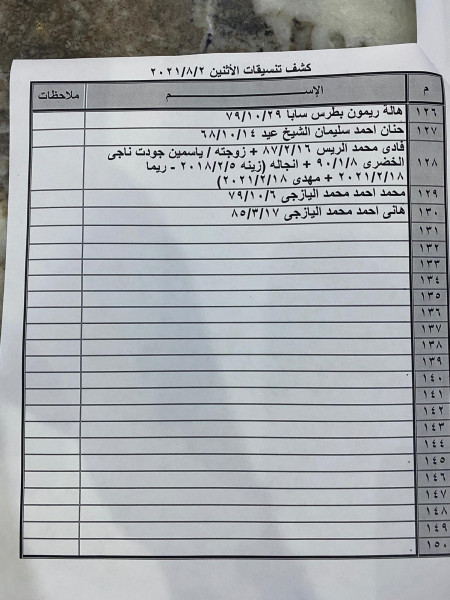 كشف تنسيقات الأثنين ٢٠٢١/٨/٢
م الإســـــــــم ملاحظات
١٢٦ هالة ريمون بطرس سابا ٧٩/١٠/٢٩
١٢٧ حنان احمد سليمان الشيخ عيد ٦٨/١٠/١٤
١٢٨ فادى محمد الريس ٨٧/٢/١٦ + زوجته / ياسمين جودت ناجى
الخضرى ٩٠/١/٨ + انجاله (زينه ٢٠١٨/٢/٥ - ريما
٢٠٢١/٢/١٨ + مهدى ٢٠٢١/٢/١٨)
١٢٩ محمد احمد محمد اليازجى ٧٩/١٠/٦
١٣٠ هانى احمد محمد اليازجى ٨٥/٣/١٧
١٣١
١٣٢
١٣٣
١٣٤
١٣٥
١٣٦
١٣٧
١٣٨
١٣٩
١٤٠
١٤١
١٤٢
١٤٣
١٤٤
١٤٥
١٤٦
١٤٧
١٤٨
١٤٩
١٥٠